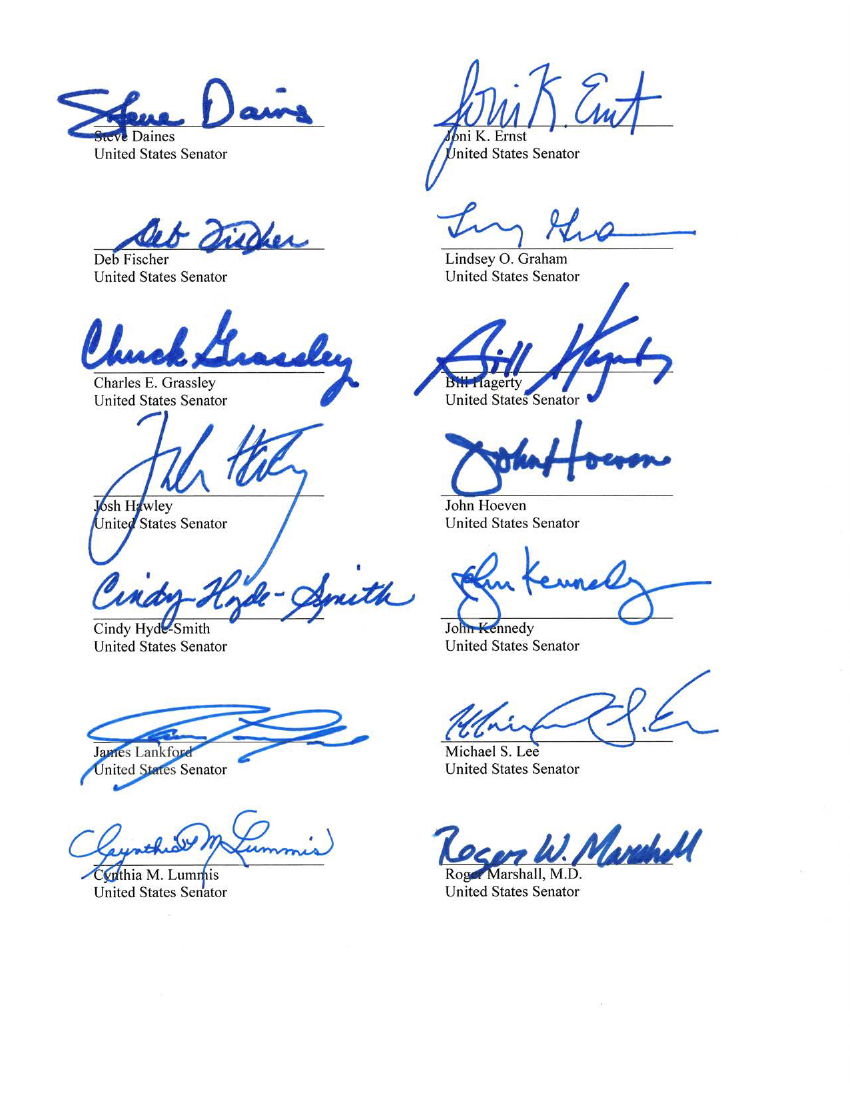 Steve Daines
Steve Daines
United States Senator
Joni K. Ernst
Joni K. Ernst
United States Senator
Deb Fischer
Deb Fischer
United States Senator
Lindsey O. Graham
United States Senator
Chuck Grassley
Charles E. Grassley
United States Senator
Bill Hagerty
Bill Hagerty
United States Senator
Josh Hawley
United States Senator
John Hoeven
John Hoeven
United States Senator
Cindy Hyde-Smith
Cindy Hyde-Smith
United States Senator
John Kennedy
John Kennedy
United States Senator
James Lankford
United States Senator
Michael S. Lee
United States Senator
Cynthia M. Lummis
Cynthia M. Lummis
United States Senator
Roger W. Marshall
Roger Marshall, M.D.
United States Senator